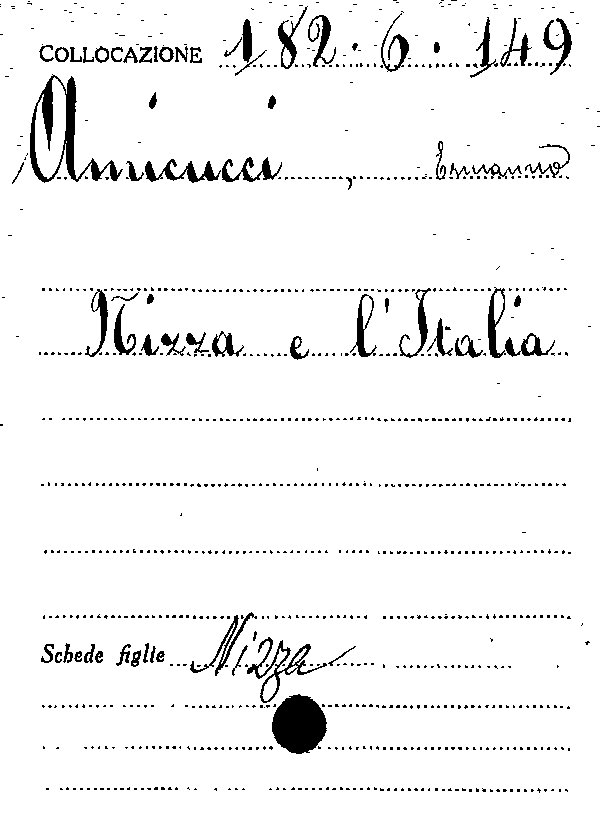 COLLOCAZIONE 182.6.149
Amicucci, Ermanno
Nizza e l'Italia
Schede figlie Nizza